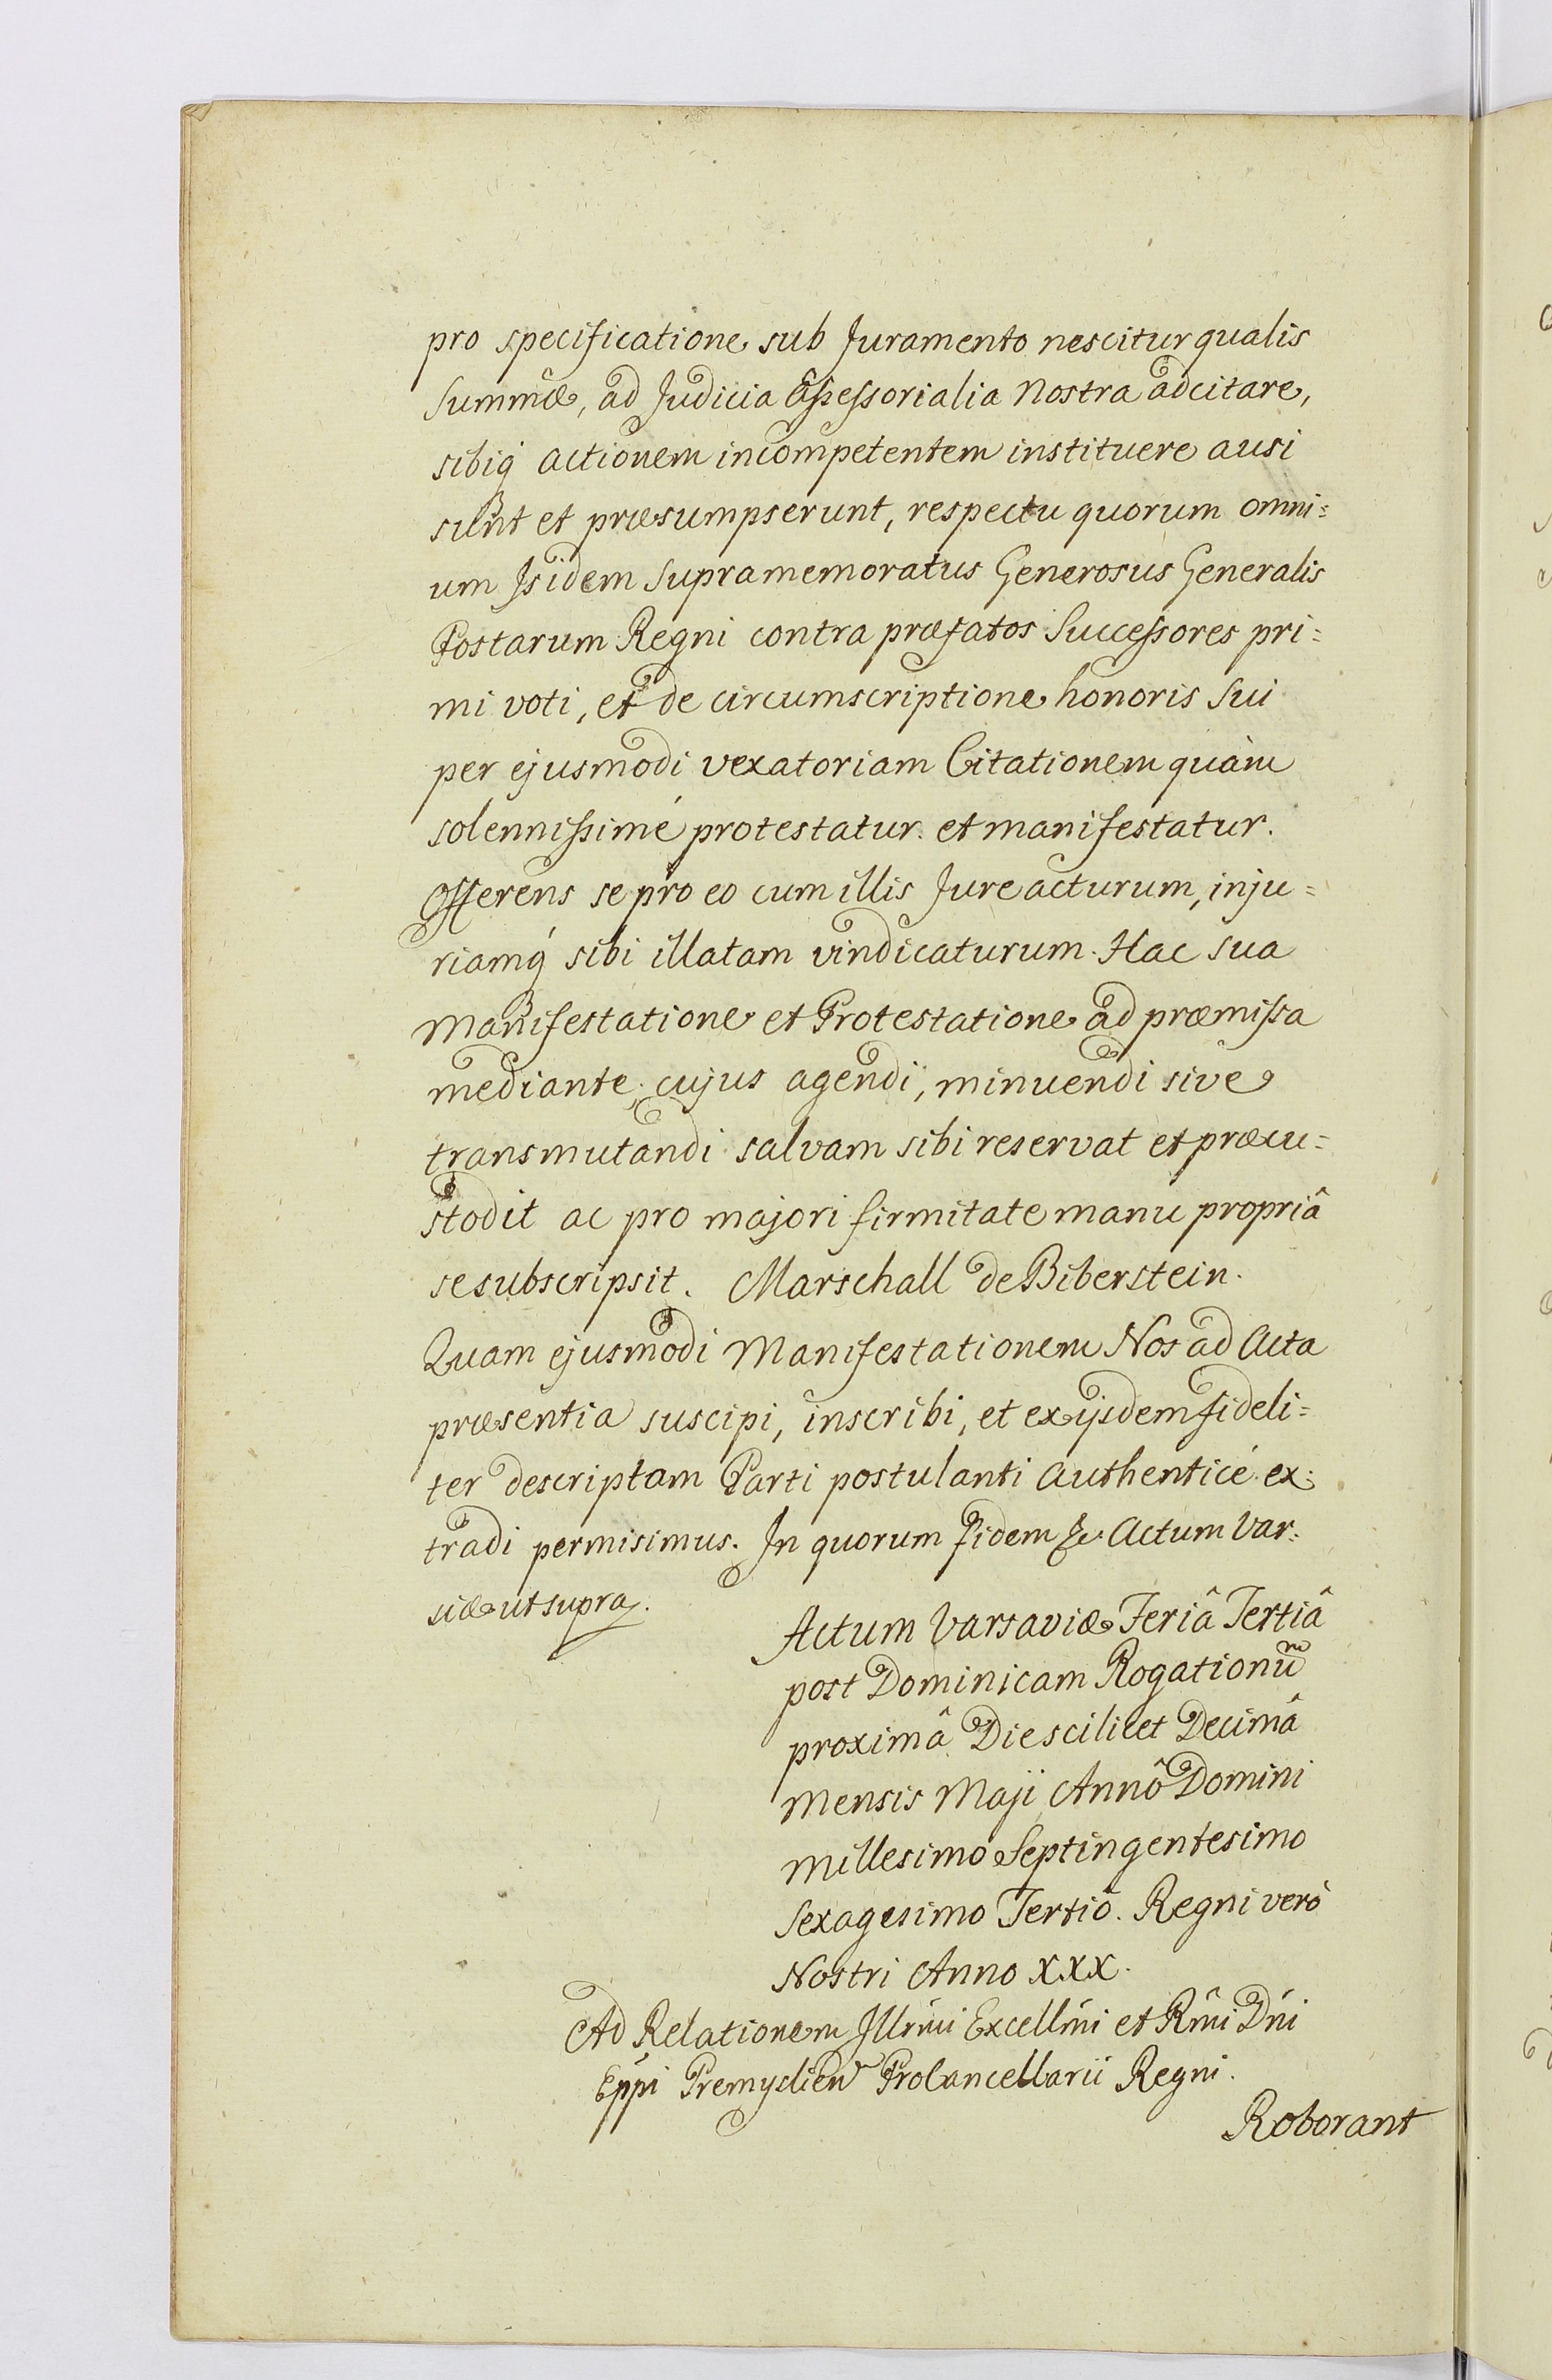 pro specificatione sub Juramento nescitur qualis
Summæ, ad Judicia Assessorialia Nostra adcitare,
sibiq́ actionem incompetentem instituere ausi
sunt et præsumpserunt, respectu quorum omni=
um Jsidem Supramemoratus Generosus Generalis
Postarum Regni contra præfatos Successores pri=
mi voti, et de circumscriptione honoris Sui
per ejusmodi vexatoriam Citationem quàm
solennissimé protestatur et manifestatur.
Offerens se pro eo cum illis Jure acturum, inju=
riamq́ sibi illatam vindicaturum. Hac sua
Manifestatione et Protestatione ad præmissa
mediante cujus agendi, minuendi sive
transmutandi salvam sibi reservat et præcu=
stodit ac pro majori firmitate manu propriâ
se subscripsit. Marschall de Biberstein.
Quam ejusmodi Manifestationem Nos ad Acta
præsentia suscipi, inscribi, et ex ijsdem fideli=
ter descriptam Parti postulanti Authenticé ex=
tradi permisimus. In quorum fidem &c Actum Var=
siæ ut supra.
Actum Varsaviæ Feriâ Tertiâ
post Dominicam Rogationũm
proximâ Die scilicet Decimâ
Mensis Maji Annô Domini
Millesimo Septingentesimo
Sexagesimo Tertiô. Regni verò
Nostri Anno XXX.
Ad Relationem Jllrm̃i Excellm̃i et Rm̃i Dñi
Eppi Premyslien Procancellarii Regni.
Roborant